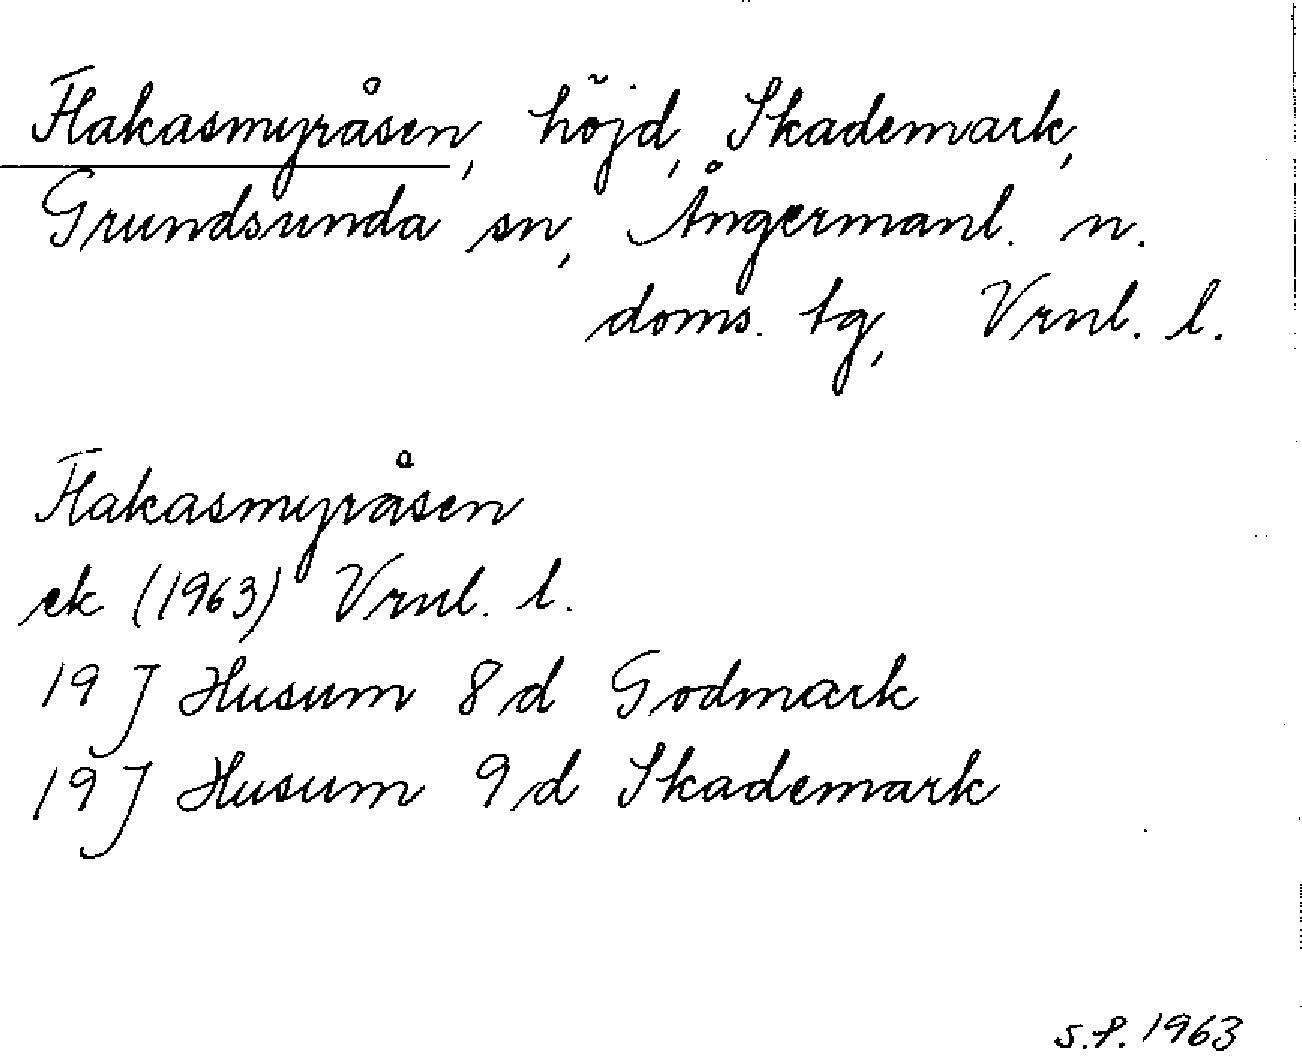 Flakasmyråsen, höjd, Skademark,
Grundsunda sn, Ångermanl. n.
doms. tg, Vrnl. l.
Flakasmyråsen
ek (1963) Vrnl. l.
19 J Husum 8 d Godmark
19 J Husum 9 d Skademark
S.P. 1963